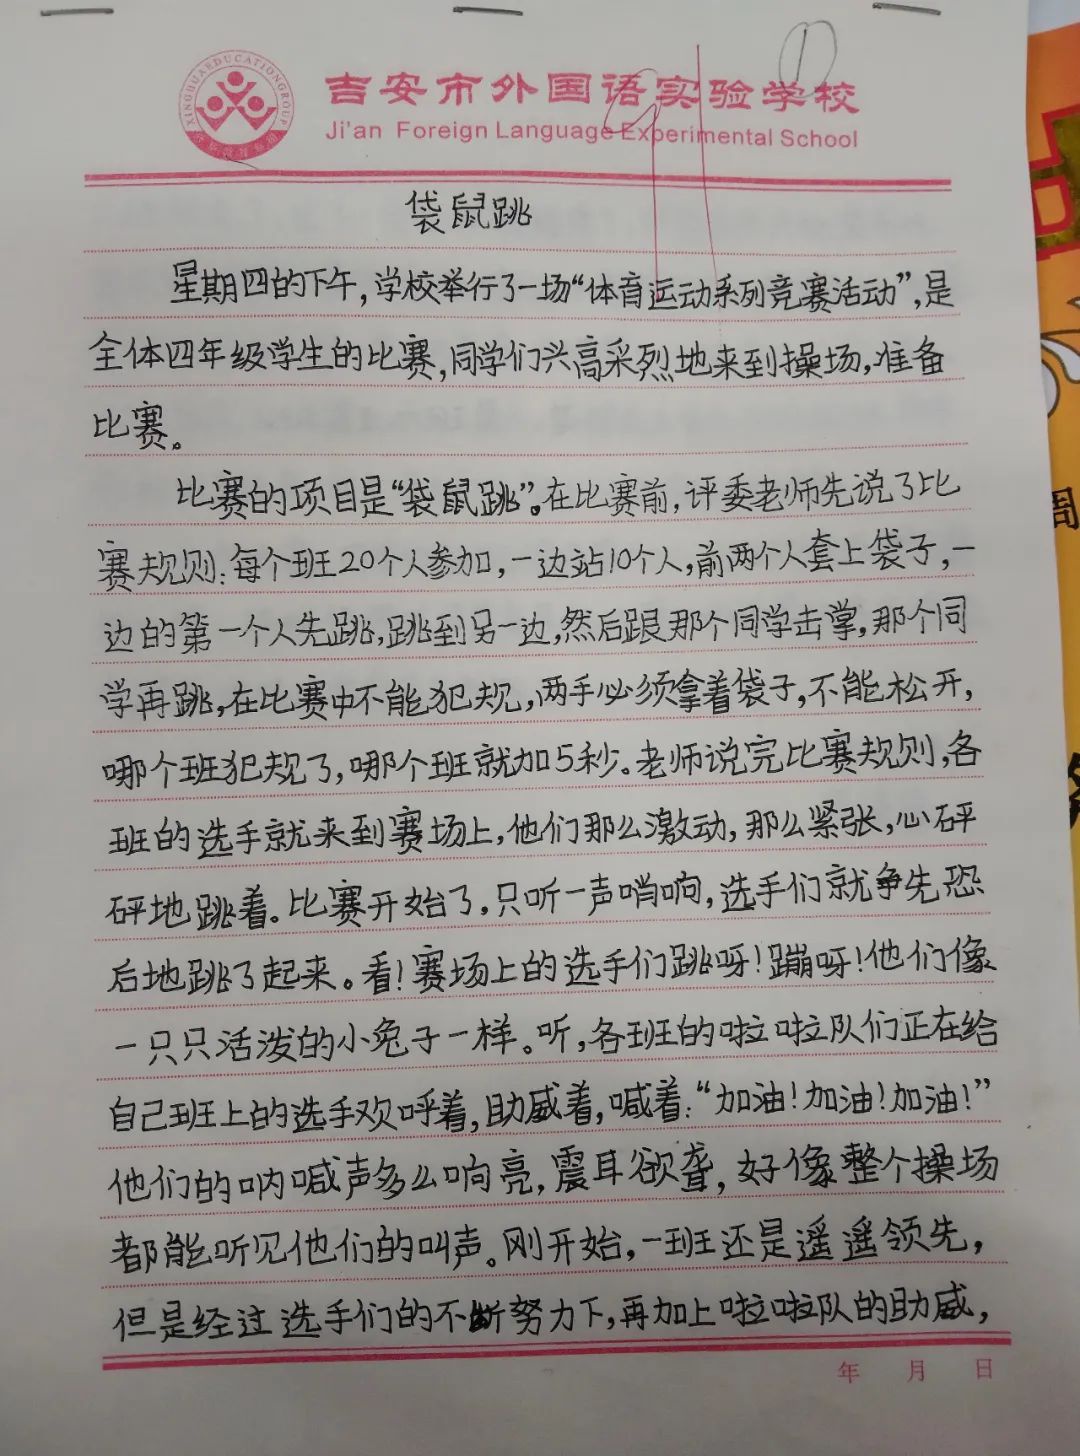 ①
XINGHUAEDUCATIONGROUP
吉安市外国语实验学校
Ji'an Foreign Language Experimental School
袋鼠跳
星期四的下午,学校举行了一场“体育运动系列竞赛活动”,是
全体四年级学生的比赛,同学们兴高采烈地来到操场,准备
比赛。
比赛的项目是“袋鼠跳”。在比赛前,评委老师先说了比
赛规则:每个班20个人参加,一边站10个人,前两个人套上袋子,一
边的第一个人先跳,跳到另一边,然后跟那个同学击掌,那个同
学再跳,在比赛中不能犯规,两手必须拿着袋子,不能松开,
哪个班犯规了,哪个班就加5秒。老师说完比赛规则,各
班的选手就来到赛场上,他们那么激动,那么紧张,心砰
砰地跳着。比赛开始了,只听一声哨响,选手们就争先恐
后地跳了起来。看!赛场上的选手们跳呀!蹦呀!他们像
一只只活泼的小兔子一样。听,各班的啦啦队们正在给
自己班上的选手欢呼着,助威着,喊着:“加油!加油!加油!”
他们的呐喊声多么响亮,震耳欲聋,好像整个操场
都能听见他们的叫声。刚开始,一班还是遥遥领先,
但是经过选手们的不断努力下,再加上啦啦队的助威,
年 月 日
周